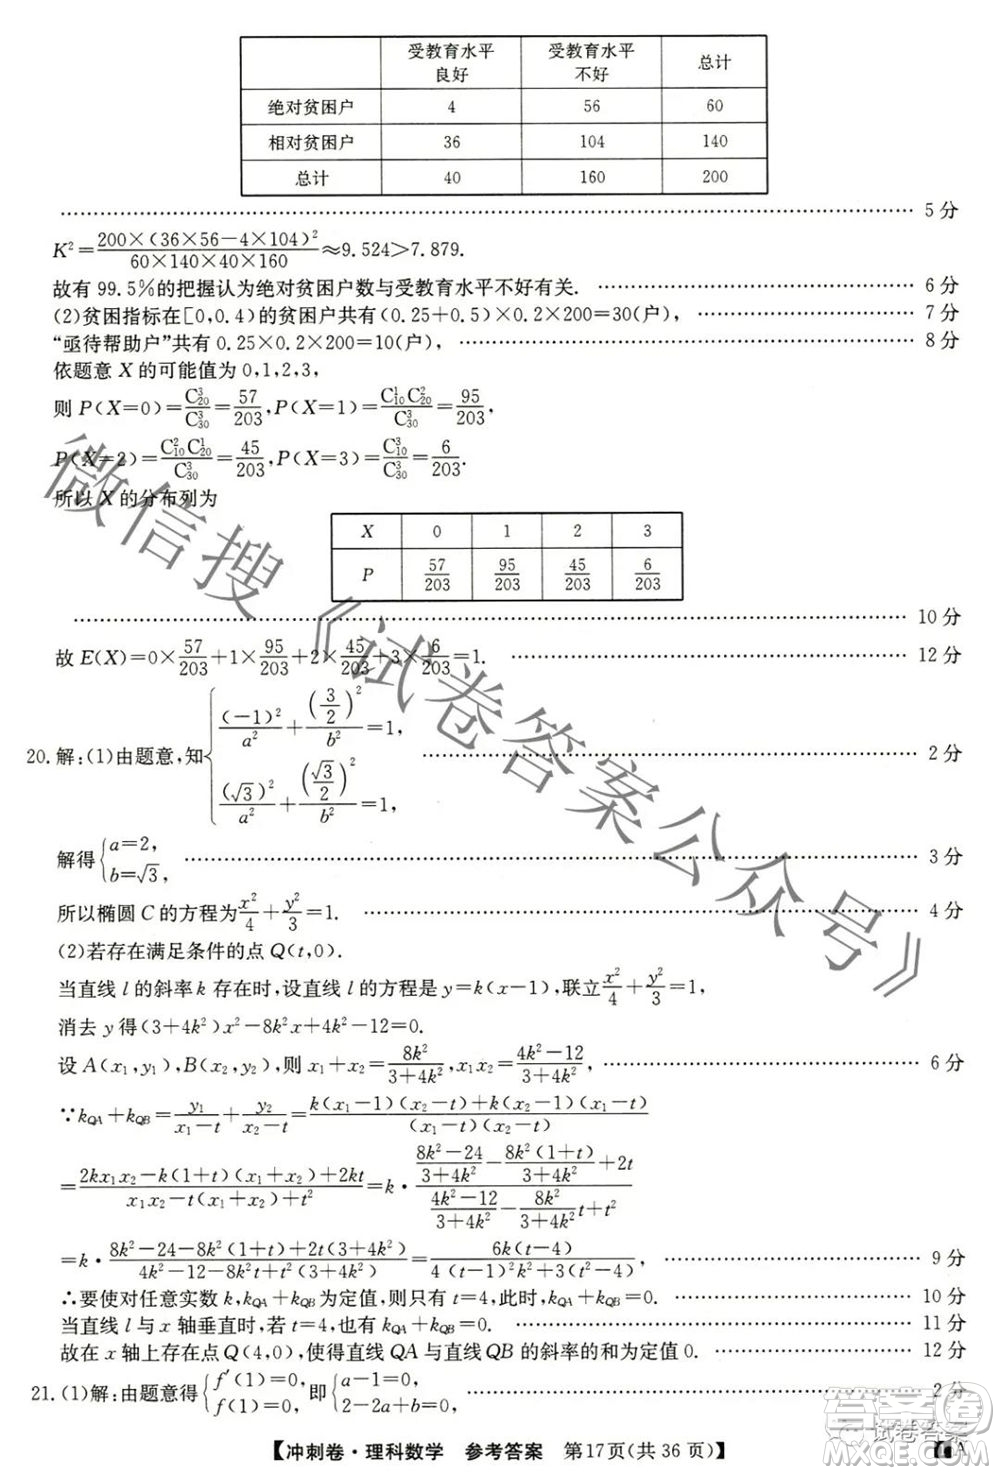 受教育水平良好 受教育水平不好 总计
绝对贫困户 4 56 60
相对贫困户 36 104 140
总计 40 160 200
5 分
K²=200×(36×56−4×104)²/(60×140×40×160)≈9.524>7.879.
故有 99.5%的把握认为绝对贫困户数与受教育水平不好有关. 6 分
(2)贫困指标在[0,0.4)的贫困户共有(0.25+0.5)×0.2×200=30(户), 7 分
“亟待帮助户”共有 0.25×0.2×200=10(户), 8 分
依题意 X 的可能值为 0,1,2,3,
则 P(X=0)=C₂₀³/C₃₀³=57/203,P(X=1)=C₁₀¹C₂₀²/C₃₀³=95/203,
P(X=2)=C₁₀²C₂₀¹/C₃₀³=45/203,P(X=3)=C₁₀³/C₃₀³=6/203.
所以 X 的分布列为
X 0 1 2 3
P 57/203 95/203 45/203 6/203
10 分
故 E(X)=0×57/203+1×95/203+2×45/203+3×6/203=1. 12 分
20.解:(1)由题意,知{(−1)²/a²+(3/2)²/b²=1, (√3)²/a²+(√3/2)²/b²=1, 2 分
解得{a=2, b=√3, 3 分
所以椭圆 C 的方程为x²/4+y²/3=1. 4 分
(2)若存在满足条件的点 Q(t,0).
当直线 l 的斜率 k 存在时,设直线 l 的方程是 y=k(x−1),联立x²/4+y²/3=1,
消去 y 得(3+4k²)x²−8k²x+4k²−12=0.
设 A(x₁,y₁),B(x₂,y₂),则 x₁+x₂=8k²/(3+4k²),x₁x₂=(4k²−12)/(3+4k²), 6 分
∵k_QA+k_QB=y₁/(x₁−t)+y₂/(x₂−t)=[k(x₁−1)(x₂−t)+k(x₂−1)(x₁−t)]/[(x₁−t)(x₂−t)]
=[2kx₁x₂−k(1+t)(x₁+x₂)+2kt]/[x₁x₂−t(x₁+x₂)+t²]=k·[(8k²−24)/(3+4k²)−8k²(1+t)/(3+4k²)+2t]/[(4k²−12)/(3+4k²)−8k²/(3+4k²)t+t²]
=k·[8k²−24−8k²(1+t)+2t(3+4k²)]/[4k²−12−8k²t+t²(3+4k²)]=6k(t−4)/[4(t−1)²k²+3(t²−4)], 9 分
∴要使对任意实数 k,k_QA+k_QB为定值,则只有 t=4,此时,k_QA+k_QB=0. 10 分
当直线 l 与 x 轴垂直时,若 t=4,也有 k_QA+k_QB=0. 11 分
故在 x 轴上存在点 Q(4,0),使得直线 QA 与直线 QB 的斜率的和为定值 0. 12 分
21.(1)解:由题意得{f′(1)=0, f(1)=0, 即{a−1=0, 2−2a+b=0, 2 分
【冲刺卷·理科数学 参考答案 第17页(共 36 页)】
微信搜《试卷答案公众号》
试卷答案
答案圈
MXQE.COM
A